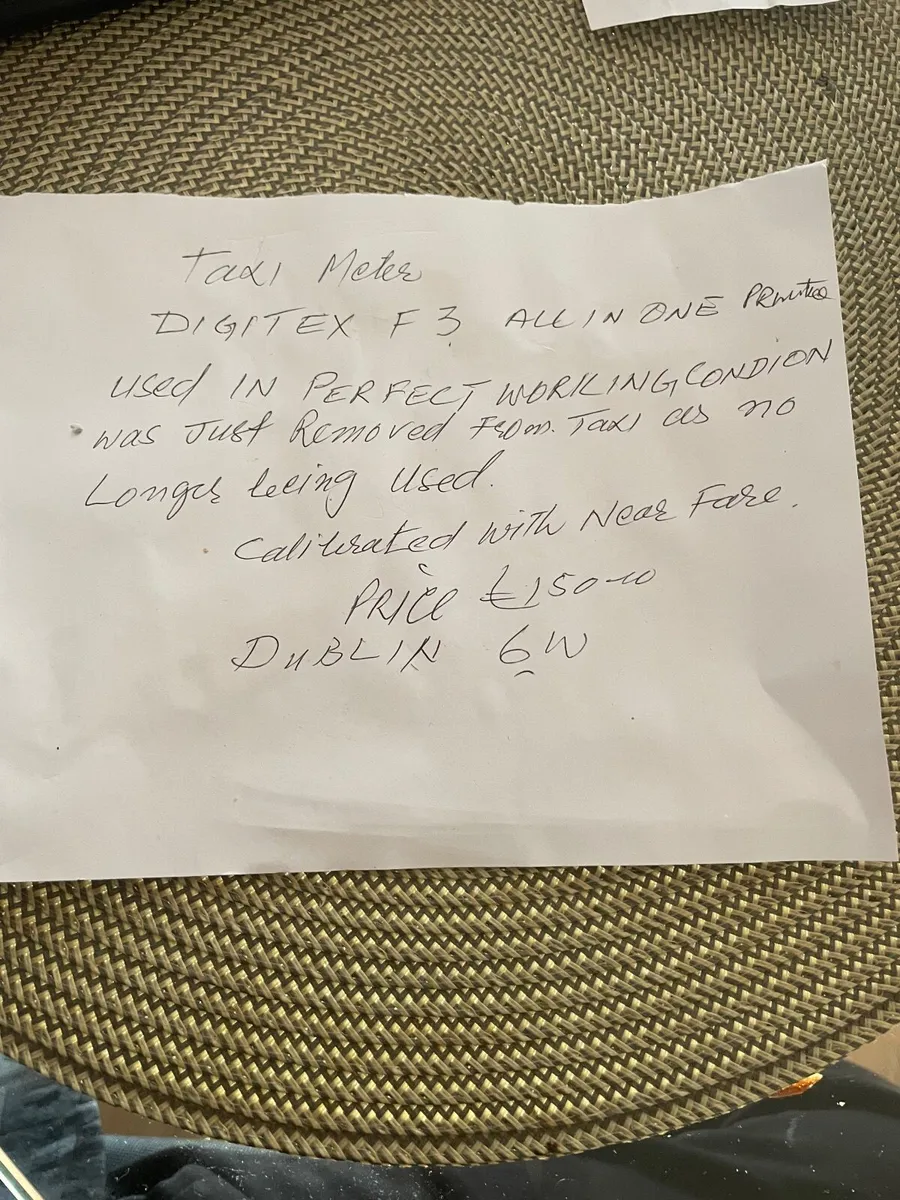 Taxi Meter
DIGITEX F3 ALL IN ONE PRinter
used IN PERFECT WORKING CONDION
was Just Removed From. Taxi as no
Longer being used.
Calibrated with New Fare.
PRICE €150-00
DUBLIN 6W